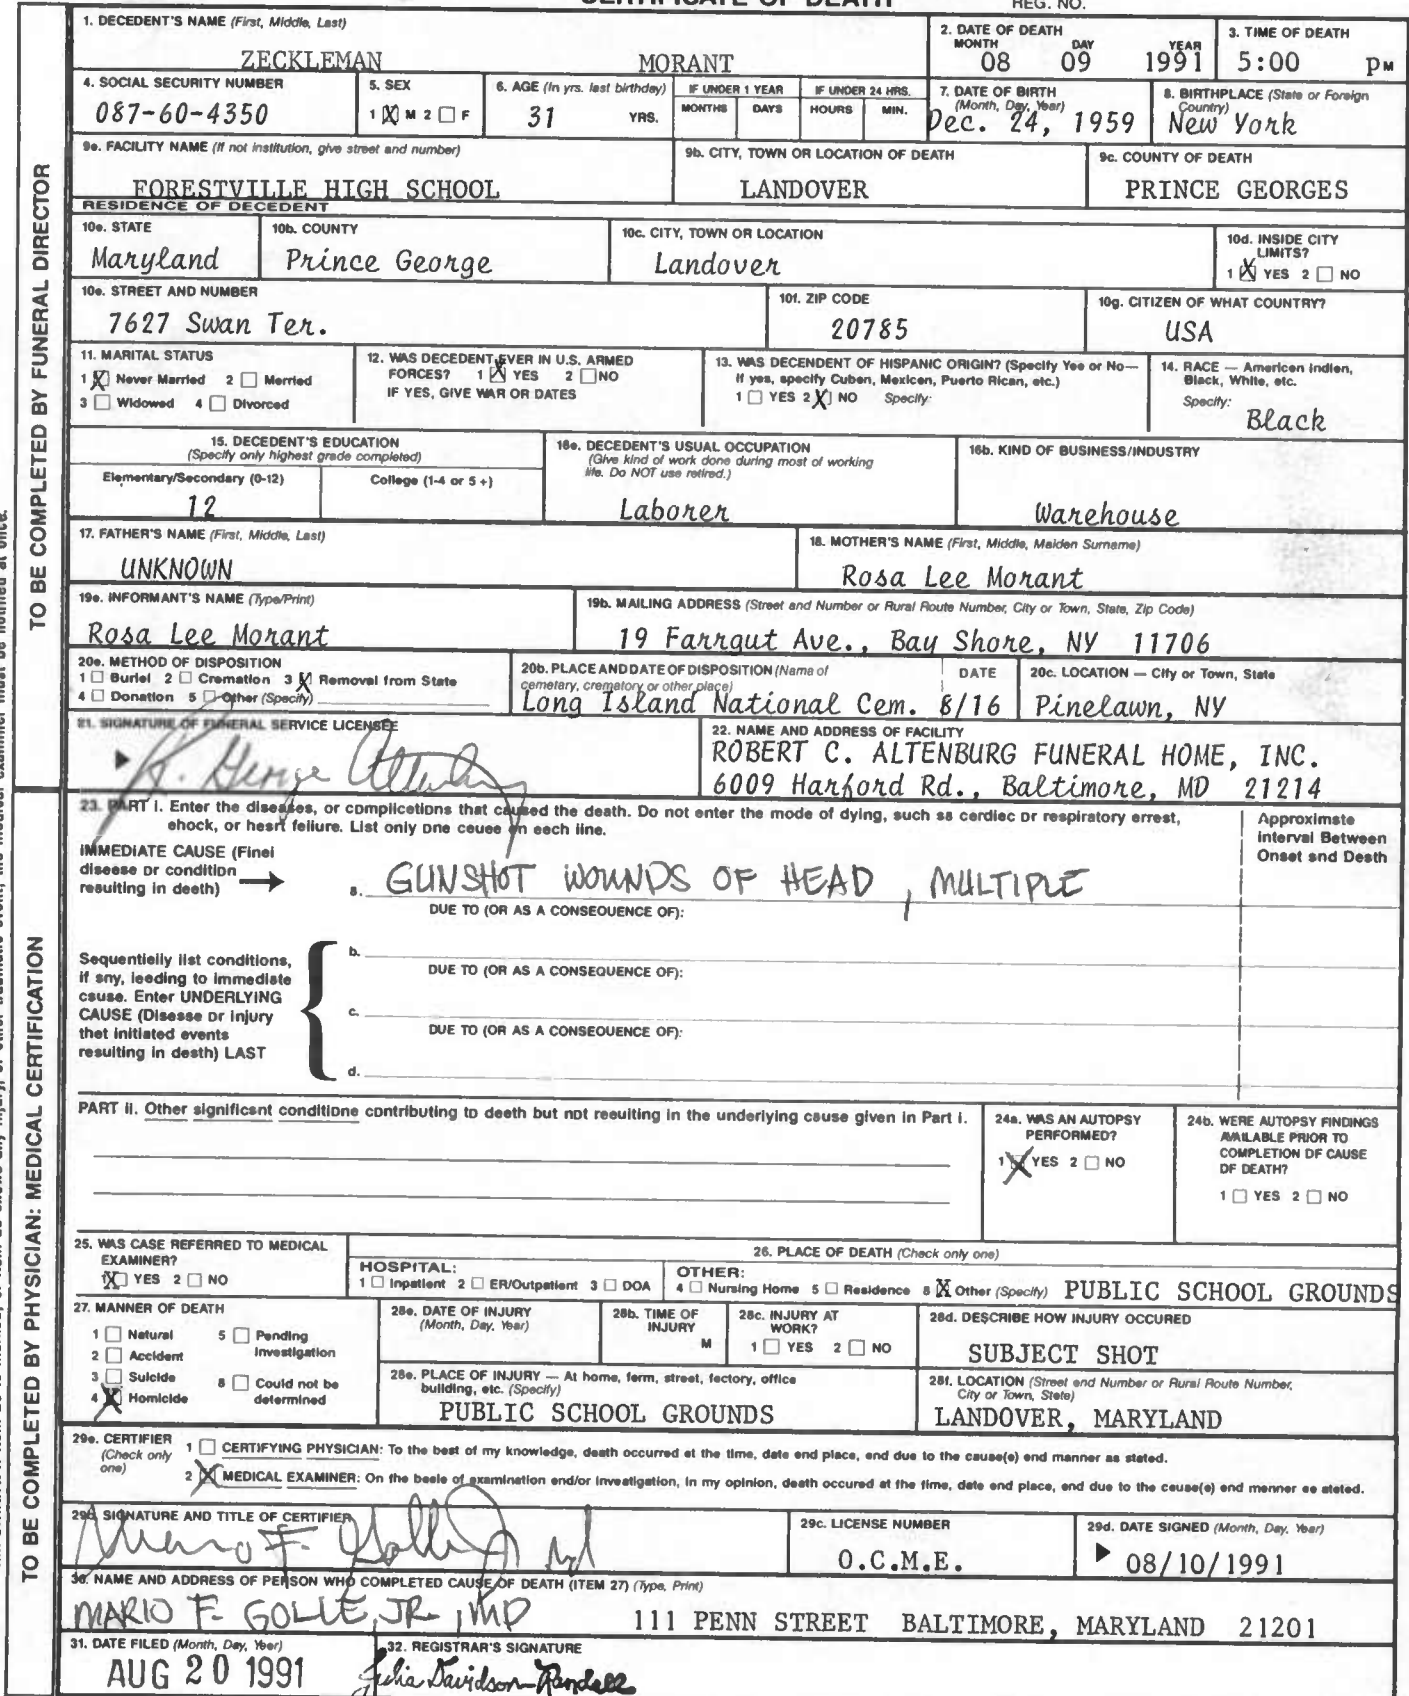 CERTIFICATE OF DEATH REG. NO.
1. DECEDENT'S NAME (First, Middle, Last)
ZECKLEMAN MORANT
2. DATE OF DEATH
MONTH DAY YEAR
08 09 1991
3. TIME OF DEATH
5:00 PM
4. SOCIAL SECURITY NUMBER
087-60-4350
5. SEX
1 X M 2 F
6. AGE (In yrs. last birthday)
31 YRS.
IF UNDER 1 YEAR
MONTHS DAYS
IF UNDER 24 HRS.
HOURS MIN.
7. DATE OF BIRTH
(Month, Day, Year)
Dec. 24, 1959
8. BIRTHPLACE (State or Foreign
Country)
New York
9a. FACILITY NAME (If not institution, give street and number)
FORESTVILLE HIGH SCHOOL
9b. CITY, TOWN OR LOCATION OF DEATH
LANDOVER
9c. COUNTY OF DEATH
PRINCE GEORGES
RESIDENCE OF DECEDENT
10a. STATE
Maryland
10b. COUNTY
Prince George
10c. CITY, TOWN OR LOCATION
Landover
10d. INSIDE CITY
LIMITS?
1 X YES 2 NO
10e. STREET AND NUMBER
7627 Swan Ter.
10f. ZIP CODE
20785
10g. CITIZEN OF WHAT COUNTRY?
USA
11. MARITAL STATUS
1 X Never Married 2 Married
3 Widowed 4 Divorced
12. WAS DECEDENT EVER IN U.S. ARMED
FORCES? 1 X YES 2 NO
IF YES, GIVE WAR OR DATES
13. WAS DECENDENT OF HISPANIC ORIGIN? (Specify Yes or No—
If yes, specify Cuban, Mexican, Puerto Rican, etc.)
1 YES 2 X NO Specify:
14. RACE — American Indian,
Black, White, etc.
Specify:
Black
15. DECEDENT'S EDUCATION
(Specify only highest grade completed)
Elementary/Secondary (0-12) College (1-4 or 5 +)
12
16a. DECEDENT'S USUAL OCCUPATION
(Give kind of work done during most of working
life. Do NOT use retired.)
Laborer
16b. KIND OF BUSINESS/INDUSTRY
Warehouse
17. FATHER'S NAME (First, Middle, Last)
UNKNOWN
18. MOTHER'S NAME (First, Middle, Maiden Surname)
Rosa Lee Morant
19a. INFORMANT'S NAME (Type/Print)
Rosa Lee Morant
19b. MAILING ADDRESS (Street and Number or Rural Route Number, City or Town, State, Zip Code)
19 Farrgut Ave., Bay Shore, NY 11706
20a. METHOD OF DISPOSITION
1 Burial 2 Cremation 3 X Removal from State
4 Donation 5 Other (Specify)
20b. PLACE AND DATE OF DISPOSITION (Name of
cemetary, crematory or other place)
DATE
Long Island National Cem. 8/16
20c. LOCATION — City or Town, State
Pinelawn, NY
21. SIGNATURE OF FUNERAL SERVICE LICENSEE
22. NAME AND ADDRESS OF FACILITY
ROBERT C. ALTENBURG FUNERAL HOME, INC.
6009 Harford Rd., Baltimore, MD 21214
TO BE COMPLETED BY FUNERAL DIRECTOR
23. PART I. Enter the diseases, or complications that caused the death. Do not enter the mode of dying, such as cardiac or respiratory arrest,
shock, or heart failure. List only one cause on each line.
Approximate
Interval Between
Onset and Death
IMMEDIATE CAUSE (Final
disease or condition
resulting in death)
a. GUNSHOT WOUNDS OF HEAD, MULTIPLE
DUE TO (OR AS A CONSEQUENCE OF):
Sequentially list conditions,
if any, leading to immediate
cause. Enter UNDERLYING
CAUSE (Disease or injury
that initiated events
resulting in death) LAST
b.
DUE TO (OR AS A CONSEQUENCE OF):
c.
DUE TO (OR AS A CONSEQUENCE OF):
d.
PART II. Other significant conditions contributing to death but not resulting in the underlying cause given in Part I.
24a. WAS AN AUTOPSY
PERFORMED?
1 X YES 2 NO
24b. WERE AUTOPSY FINDINGS
AVAILABLE PRIOR TO
COMPLETION OF CAUSE
OF DEATH?
1 YES 2 NO
25. WAS CASE REFERRED TO MEDICAL
EXAMINER?
1 X YES 2 NO
26. PLACE OF DEATH (Check only one)
HOSPITAL:
1 Inpatient 2 ER/Outpatient 3 DOA
OTHER:
4 Nursing Home 5 Residence 6 X Other (Specify) PUBLIC SCHOOL GROUNDS
27. MANNER OF DEATH
1 Natural 5 Pending
Investigation
2 Accident
3 Suicide 6 Could not be
determined
4 X Homicide
28a. DATE OF INJURY
(Month, Day, Year)
28b. TIME OF
INJURY
M
28c. INJURY AT
WORK?
1 YES 2 NO
28d. DESCRIBE HOW INJURY OCCURED
SUBJECT SHOT
28e. PLACE OF INJURY — At home, farm, street, factory, office
building, etc. (Specify)
PUBLIC SCHOOL GROUNDS
28f. LOCATION (Street and Number or Rural Route Number,
City or Town, State)
LANDOVER, MARYLAND
29a. CERTIFIER
(Check only
one)
1 CERTIFYING PHYSICIAN: To the best of my knowledge, death occurred at the time, date and place, and due to the cause(s) and manner as stated.
2 X MEDICAL EXAMINER: On the basis of examination and/or investigation, in my opinion, death occured at the time, date and place, and due to the cause(s) and manner as stated.
29b. SIGNATURE AND TITLE OF CERTIFIER
29c. LICENSE NUMBER
O.C.M.E.
29d. DATE SIGNED (Month, Day, Year)
08/10/1991
30. NAME AND ADDRESS OF PERSON WHO COMPLETED CAUSE OF DEATH (ITEM 27) (Type, Print)
MARIO F. GOLLE, JR., MD 111 PENN STREET BALTIMORE, MARYLAND 21201
31. DATE FILED (Month, Day, Year)
AUG 20 1991
32. REGISTRAR'S SIGNATURE
Julia Davidson-Randall
TO BE COMPLETED BY PHYSICIAN: MEDICAL CERTIFICATION